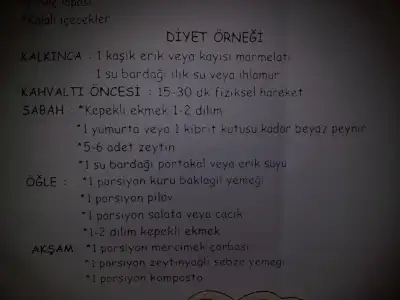 lapası
*Kolalı içecekler
DİYET ÖRNEĞİ
KALKINCA : 1 kaşık erik veya kayısı marmelatı
1 su bardağı ılık su veya ıhlamur
KAHVALTI ÖNCESİ : 15-30 dk fiziksel hareket
SABAH : *Kepekli ekmek 1-2 dilim
*1 yumurta veya 1 kibrit kutusu kadar beyaz peynir
*5-6 adet zeytin
*1 su bardağı portakal veya erik suyu
ÖĞLE : *1 porsiyon kuru baklagil yemeği
*1 porsiyon pilav
*1 porsiyon salata veya cacık
*1-2 dilim kepekli ekmek
AKŞAM : *1 porsiyon mercimek çorbası
*1 porsiyon zeytinyağlı sebze yemeği
*1 porsiyon komposto